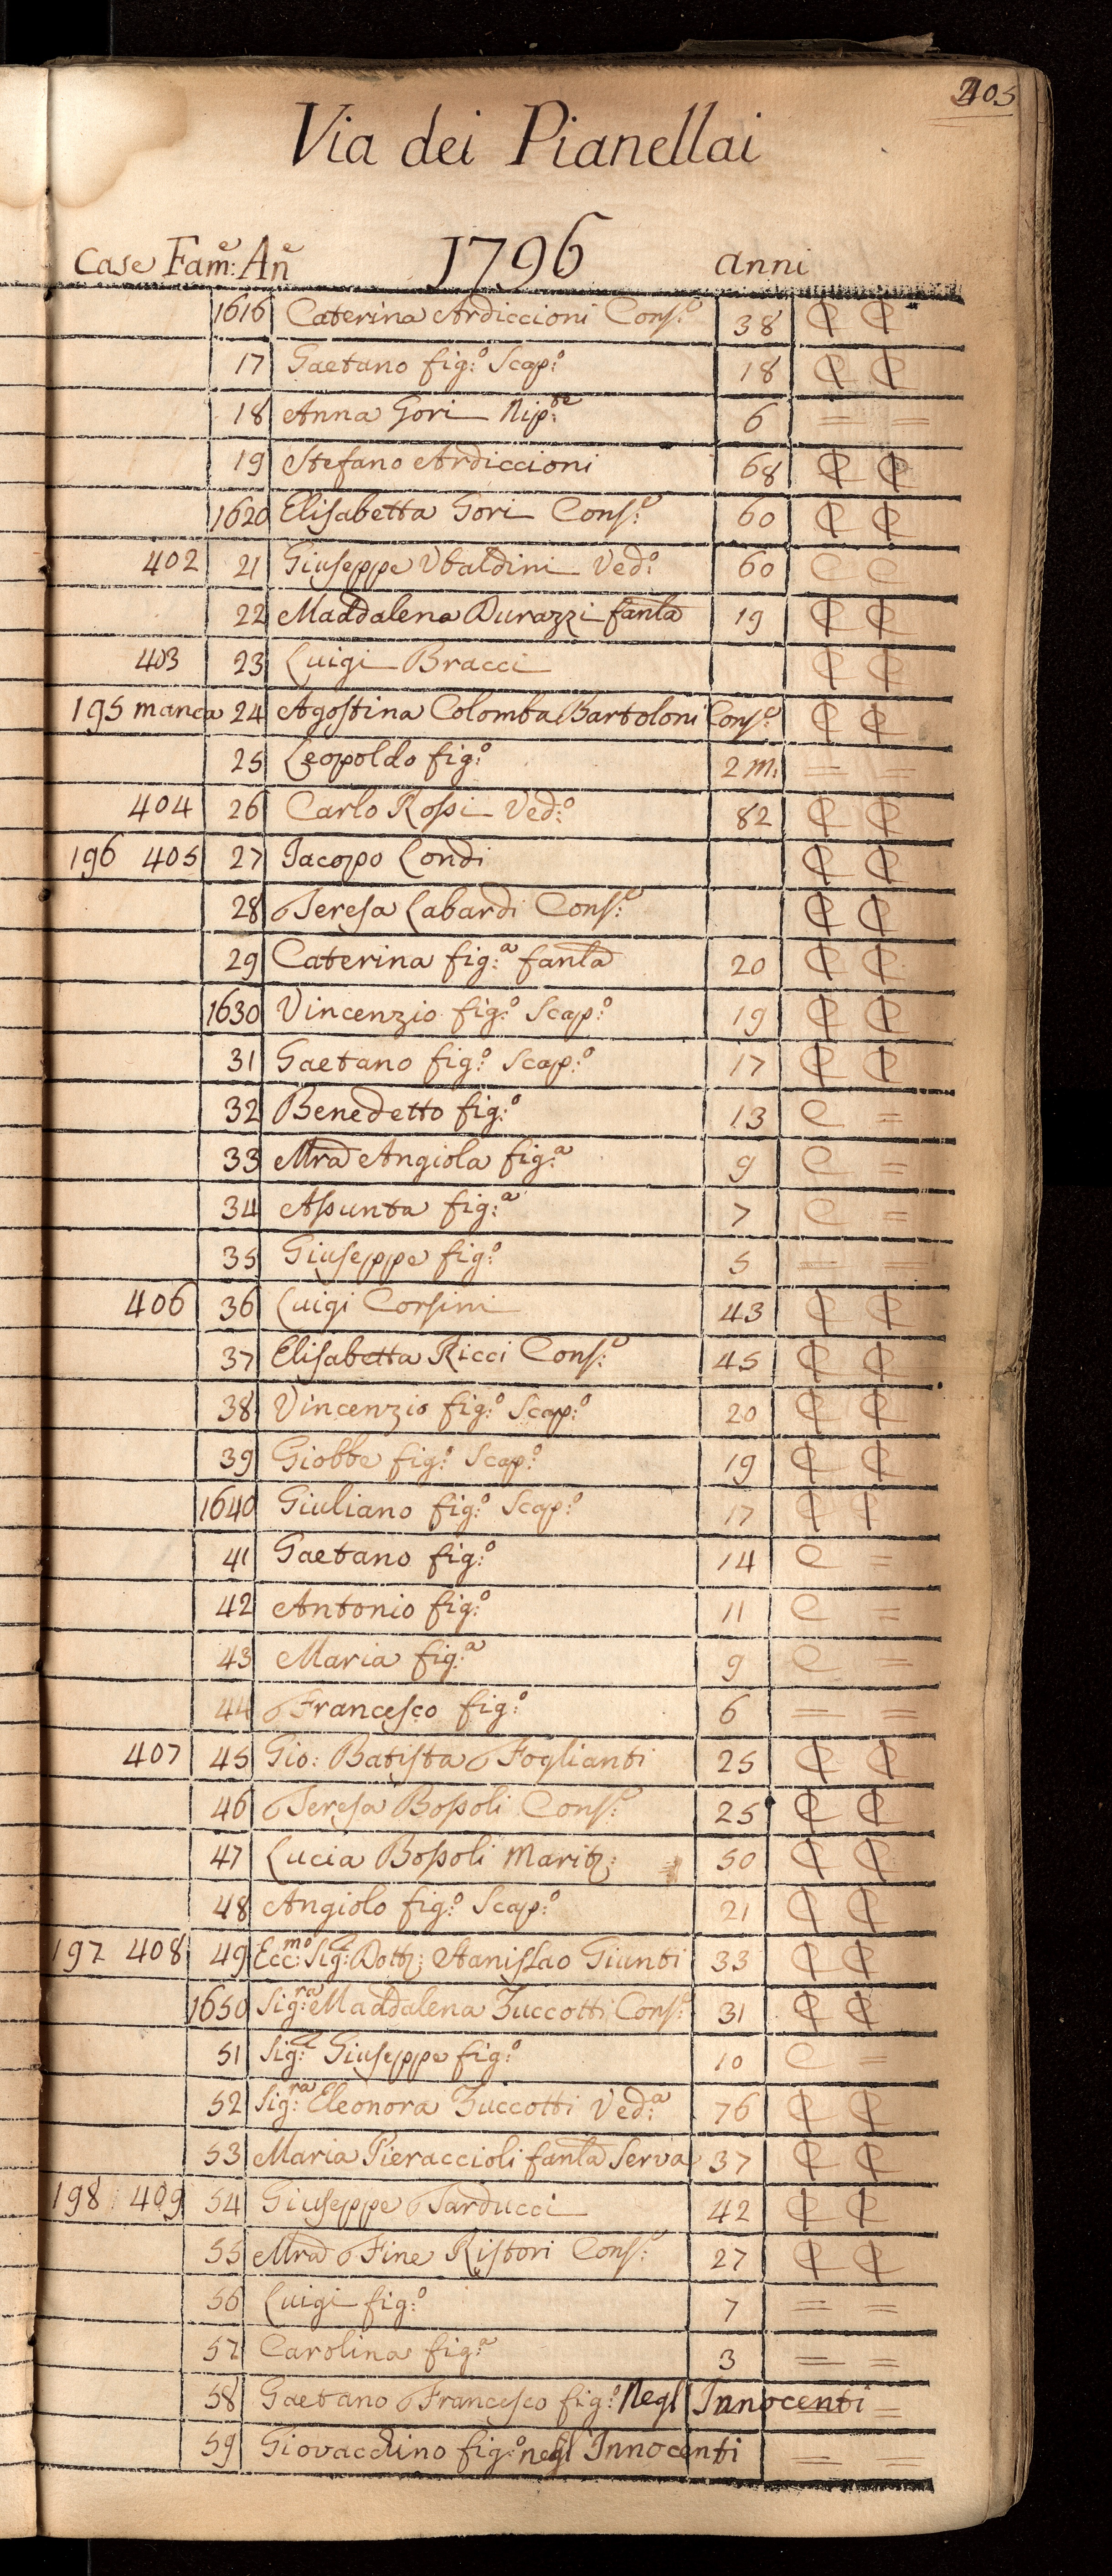 205
Via dei Pianellai
Case Fam:e An:e 1796 anni
1616 Caterina Ardiccioni Cons:e 38 C C
17 Gaetano fig:o Scap:o 18 C C
18 Anna Gori Nip:te 6 = =
19 Stefano Ardiccioni 68 C C
1620 Elisabetta Gori Cons:e 60 C C
402 21 Giuseppe Ubaldini Ved:o 60 C C
22 Maddalena Durazzi fanla 19 C C
403 23 Luigi Bracci C C
195 manca 24 Agostina Colomba Bartoloni Cons:e C C
25 Leopoldo fig:o 2 m: = =
404 26 Carlo Rossi Ved:o 82 C C
196 405 27 Jacopo Londi C C
28 Teresa Labardi Cons:e C C
29 Caterina fig:a fanla 20 C C
1630 Vincenzio fig:o Scap:o 19 C C
31 Gaetano fig:o Scap:o 17 C C
32 Benedetto fig:o 13 C =
33 Mra Angiola fig:a 9 C =
34 Assunta fig:a 7 C =
35 Giuseppe fig:o 5 = =
406 36 Luigi Corsini 43 C C
37 Elisabetta Ricci Cons:e 45 C C
38 Vincenzio fig:o Scap:o 20 C C
39 Giobbe fig:o Scap:o 19 C C
1640 Giuliano fig:o Scap:o 17 C C
41 Gaetano fig:o 14 C =
42 Antonio fig:o 11 C =
43 Maria fig:a 9 C =
44 Francesco fig:o 6 = =
407 45 Gio: Batista Foglianti 25 C C
46 Teresa Bossoli Cons:e 25 C C
47 Lucia Bossoli Marit: 50 C C
48 Angiolo fig:o Scap:o 21 C C
197 408 49 Ecc:mo Sig:e Dott: Stanislao Giunti 33 C C
1650 Sig:ra Maddalena Zuccotti Cons:e 31 C C
51 Sig:e Giuseppe fig:o 10 C =
52 Sig:ra Eleonora Zuccotti Ved:a 76 C C
53 Maria Pieraccioli fanla Serva 37 C C
198 409 54 Giuseppe Tarducci 42 C C
55 Mra Fine Ristori Cons:e 27 C C
56 Luigi fig:o 7 = =
57 Carolina fig:a 3 = =
58 Gaetano Francesco fig:o Negl' Innocenti = =
59 Giovacchino fig:o negl' Innocenti = =